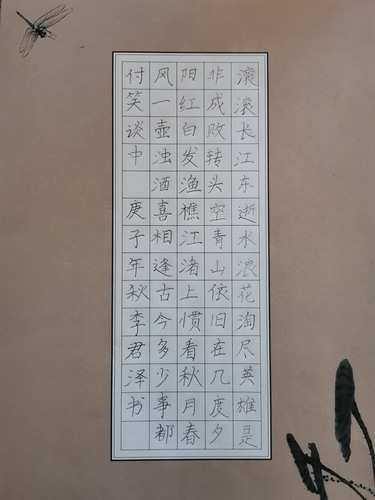 滚滚长江东逝水浪花淘尽英雄是
非成败转头空青山依旧在几度夕
阳红白发渔樵江渚上惯看秋月春
风一壶浊酒喜相逢古今多少事都
付笑谈中 庚子年秋李君泽书